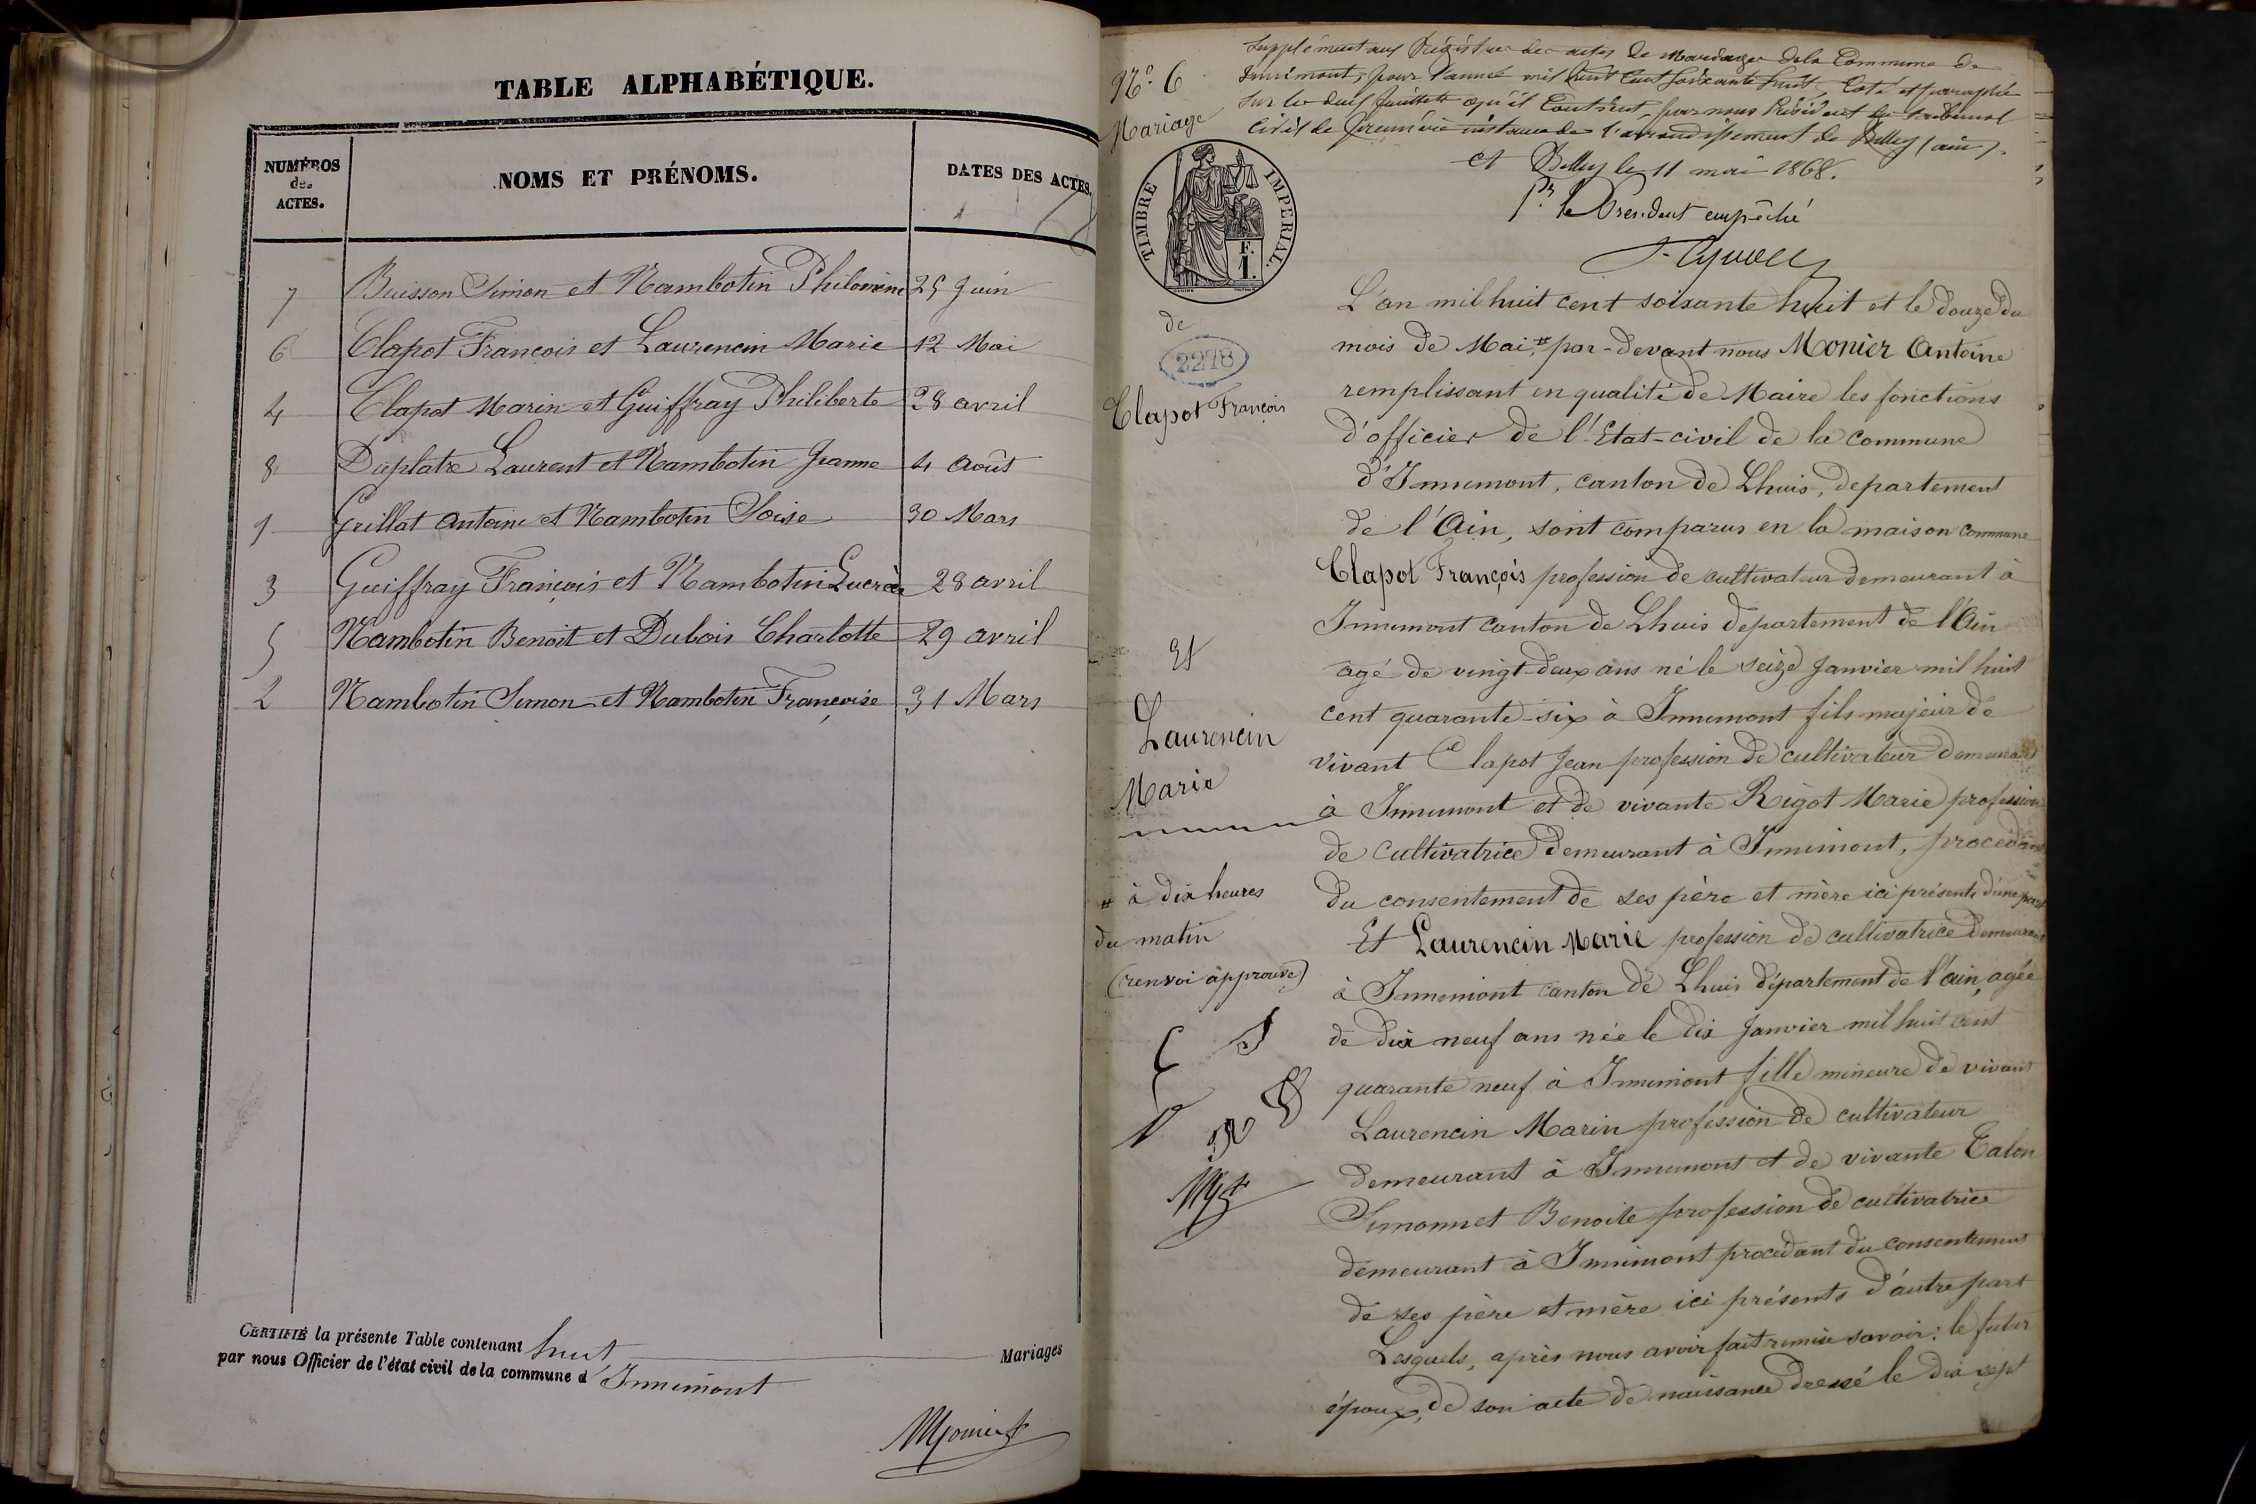 TABLE ALPHABÉTIQUE.
NUMÉROS des ACTES.
NOMS ET PRÉNOMS.
DATES DES ACTES.
7 Buisson Simon et Nambotin Philomène 25 Juin
6 Clapot François et Laurencin Marie 12 Mai
4 Clapot Marin et Guiffray Philiberte 28 avril
8 Duplatre Laurent et Nambotin Jeanne 4 Août
1 Grillat Antoine et Nambotin Soise 30 Mars
3 Guiffray François et Nambotin 28 avril
5 Nambotin Benoit et Dubois Charlotte 29 avril
2 Nambotin Simon et Nambotin Françoise 31 Mars
CERTIFIÉ la présente Table contenant huit Mariages
par nous Officier de l'état civil de la commune d'Innimont
Monier
Supplément aux Registres des actes de Mariages de la Commune de
Innimont, pour l'année mil huit cent soixante huit, Coté et paraphé
sur les deux feuillets qu'il contient, par nous Président du tribunal
Civil de première instance de l'arrondissement de Belley (ain).
et Belley le 11 mai 1868.
Pr. le Président empêché
N.º 6
Mariage
TIMBRE IMPERIAL.
F.
1.
de
2278
Clapot François
Et
Laurencin
Marie
# à dix heures
du matin
(renvoi approuvé)
L'an mil huit cent soixante huit et le douze du
mois de Mai,# par-devant nous Monier Antoine
remplissant en qualité de Maire les fonctions
d'officier de l'Etat-civil de la commune
d'Innimont, canton de Lhuis, departement
de l'Ain, sont comparus en la maison commune
Clapot François profession de cultivateur demeurant à
Innimont canton de Lhuis departement de l'Ain
agé de vingt-deux ans né le seize Janvier mil huit
cent quarante-six à Innimont fils majeur de
vivant Clapot Jean profession de cultivateur demeurant
à Innimont et de vivante Rigot Marie profession
de cultivatrice demeurant à Innimont, procédant
du consentement de ses père et mère ici présents d'une part
Et Laurencin Marie profession de cultivatrice demeurant
à Innimont canton de Lhuis département de l'ain, agée
de dix neuf ans née le dix Janvier mil huit cent
quarante neuf à Innimont fille mineure de vivant
Laurencin Marin profession de cultivateur
demeurant à Innimont et de vivante Talon
Simonnet Benoite profession de cultivatrice
demeurant à Innimont procédant du consentement
de ses père et mère ici présents d'autre part
Lesquels, après nous avoir fait remise savoir: le futur
époux, de son acte de naissance dressé le dix sept